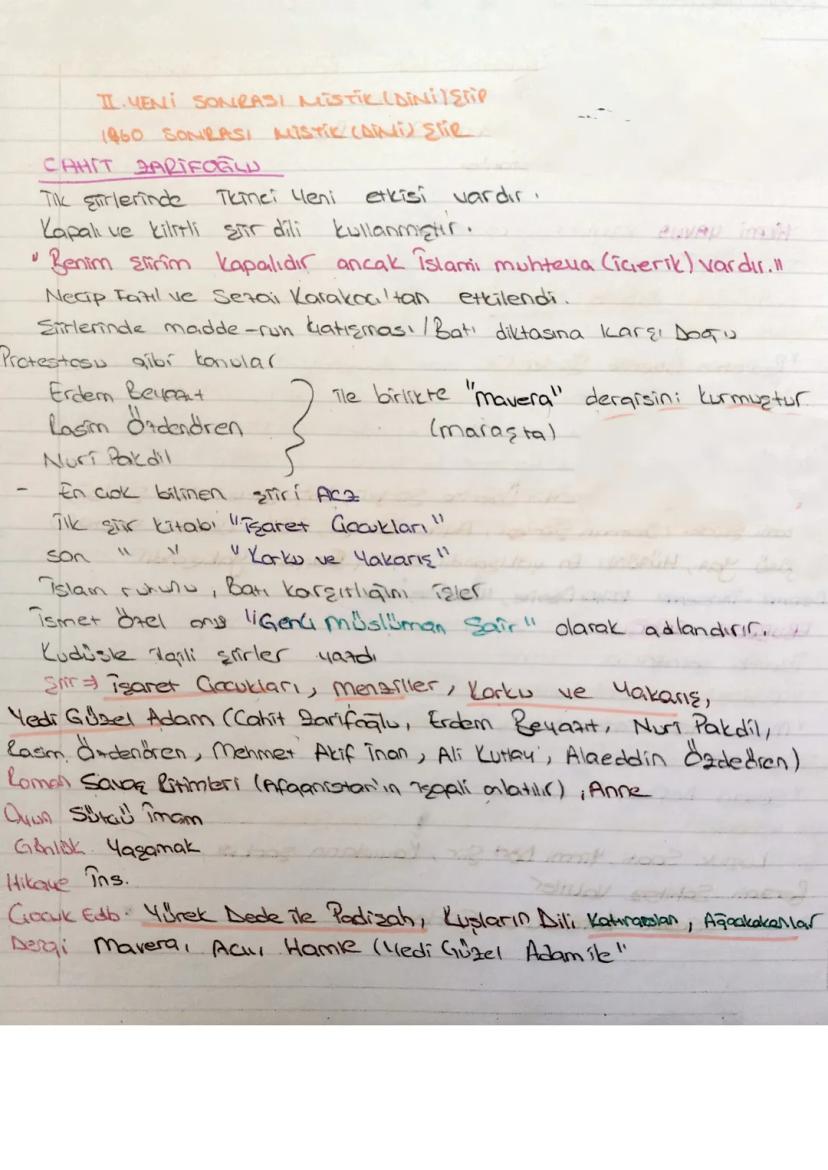 II. YENİ SONRASI MİSTİK (DİNİ) ŞİİR
1960 SONRASI MİSTİK (DİNİ) ŞİİR
CAHİT ZARİFOĞLU
İlk şiirlerinde İkinci Yeni etkisi vardır.
Kapalı ve kilitli şiir dili kullanmıştır.
"Benim şiirim kapalıdır ancak İslami muhteva (içerik) vardır."
Necip Fazıl ve Sezai Karakoç'tan etkilendi.
Şiirlerinde madde-ruh çatışması / Batı diktasına karşı Doğu
Protestosu gibi konular
Erdem Beyazıt
Rasim Özdenören
Nuri Pakdil
ile birlikte "mavera" dergisini kurmuştur
(maraşta)
- En çok bilinen şiiri Acz
İlk şiir kitabı "İşaret Çocukları"
son " " "Korku ve Yakarış"
İslam ruhunu, Batı karşıtlığını işler
İsmet Özel onu "Genç Müslüman Şair" olarak adlandırır.
Kudüsle ilgili şiirler yazdı
Şiir ⇒ İşaret Çocukları, Menziller, Korku ve Yakarış,
Yedi Güzel Adam (Cahit Zarifoğlu, Erdem Beyazıt, Nuri Pakdil,
Rasim Özdenören, Mehmet Akif İnan, Ali Kutlay, Alaeddin Özdeören)
Roman Savaş Ritimleri (Afganistan'ın işgali anlatılır), Anne
Oyun Sütçü İmam
Günlük Yaşamak
Hikaye İns.
Çocuk Edb. Yürek Dede ile Padişah, Kuşların Dili Katıraslan, Ağaçkakanlar
Dergi Mavera, Açı, Hamle (Yedi Güzel Adam ile"